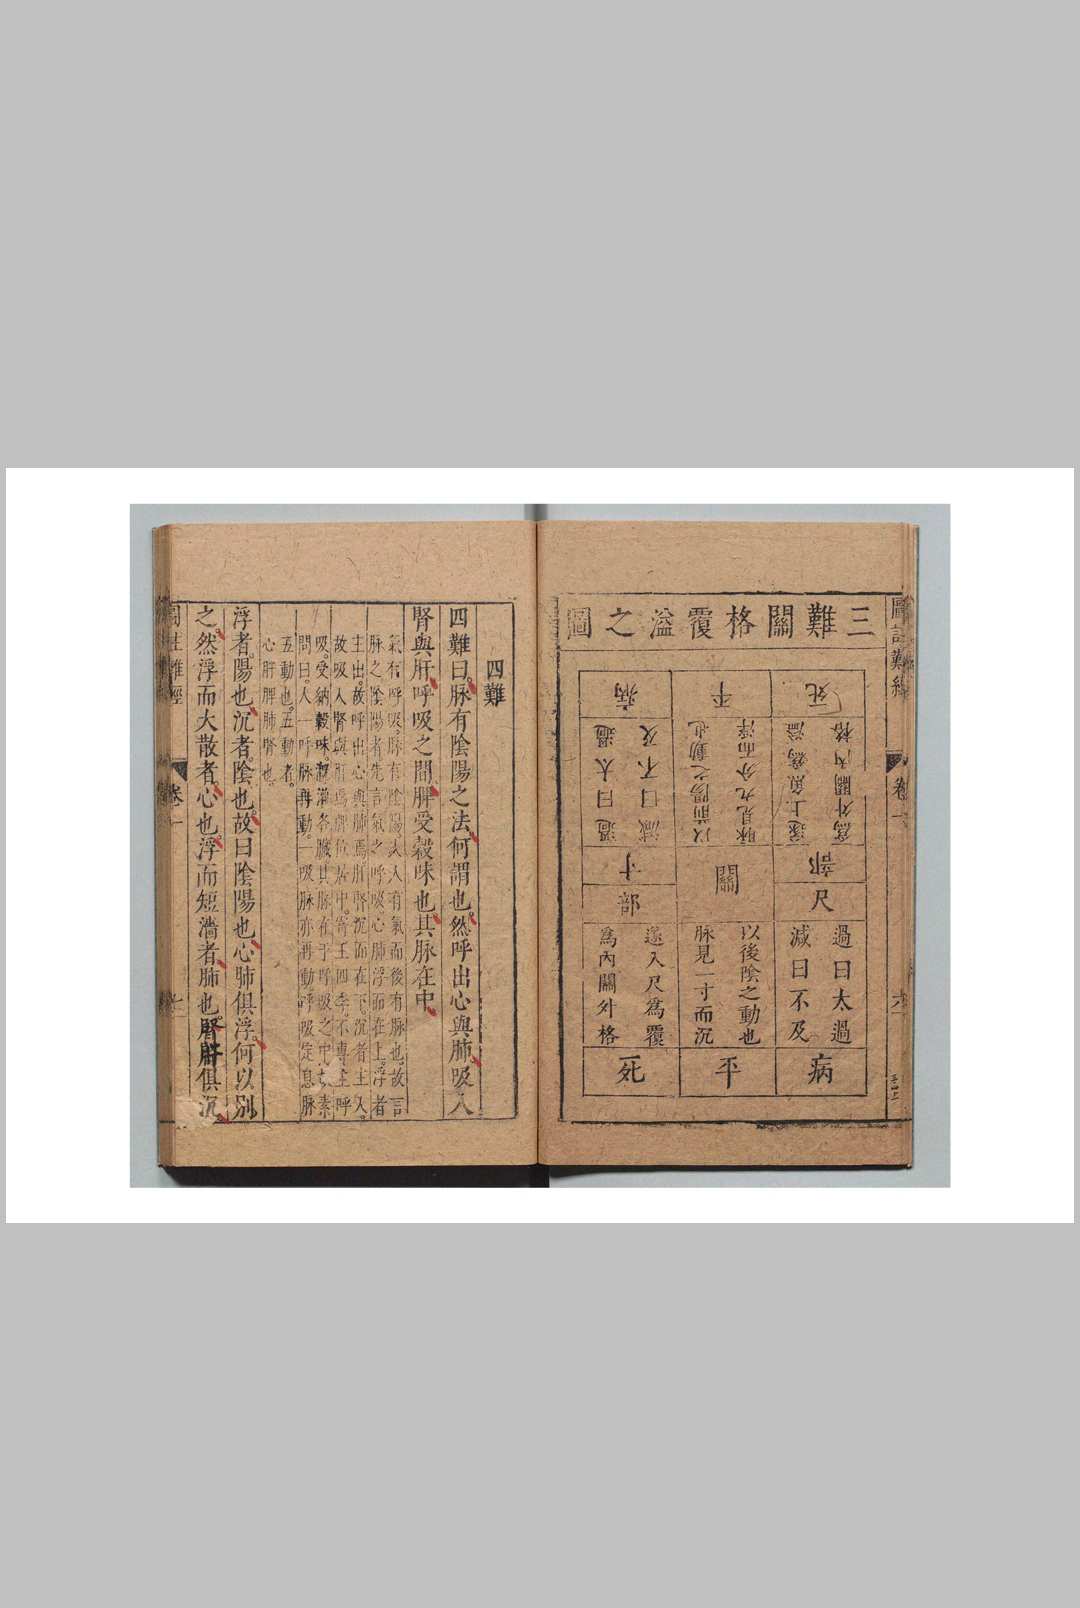 圖註難經 卷一 六
三難關格覆溢之圖
死
遂上魚爲溢
爲外關內格
平
以前陽之動也
脉見九分而浮
病
過曰太過
減曰不及
部
尺
關
寸
部
過曰太過
減曰不及
病
以後陰之動也
脉見一寸而沉
平
遂入尺爲覆
爲內關外格
死
四難
四難曰脉有陰陽之法何謂也然呼出心與肺吸入
腎與肝呼吸之間脾受穀味也其脉在中
氣有呼吸脉有陰陽夫人有氣而後有脉也故言
脉之陰陽者先言氣之呼吸心肺浮而在上浮者
主出故呼出心與肺焉肝腎沉而在下沉者主入
故吸入腎與肝焉脾位居中寄王四季不專主呼
吸受納穀味灌漑各臟其脉在于呼吸之中素
問曰人一呼脉再動一吸脉亦再動呼吸定息脉
五動也五動者
心肝脾肺腎也
浮者陽也沉者陰也故曰陰陽也心肺俱浮何以別
之然浮而大散者心也浮而短濇者肺也腎肝俱沉
圖註難經 卷一 七